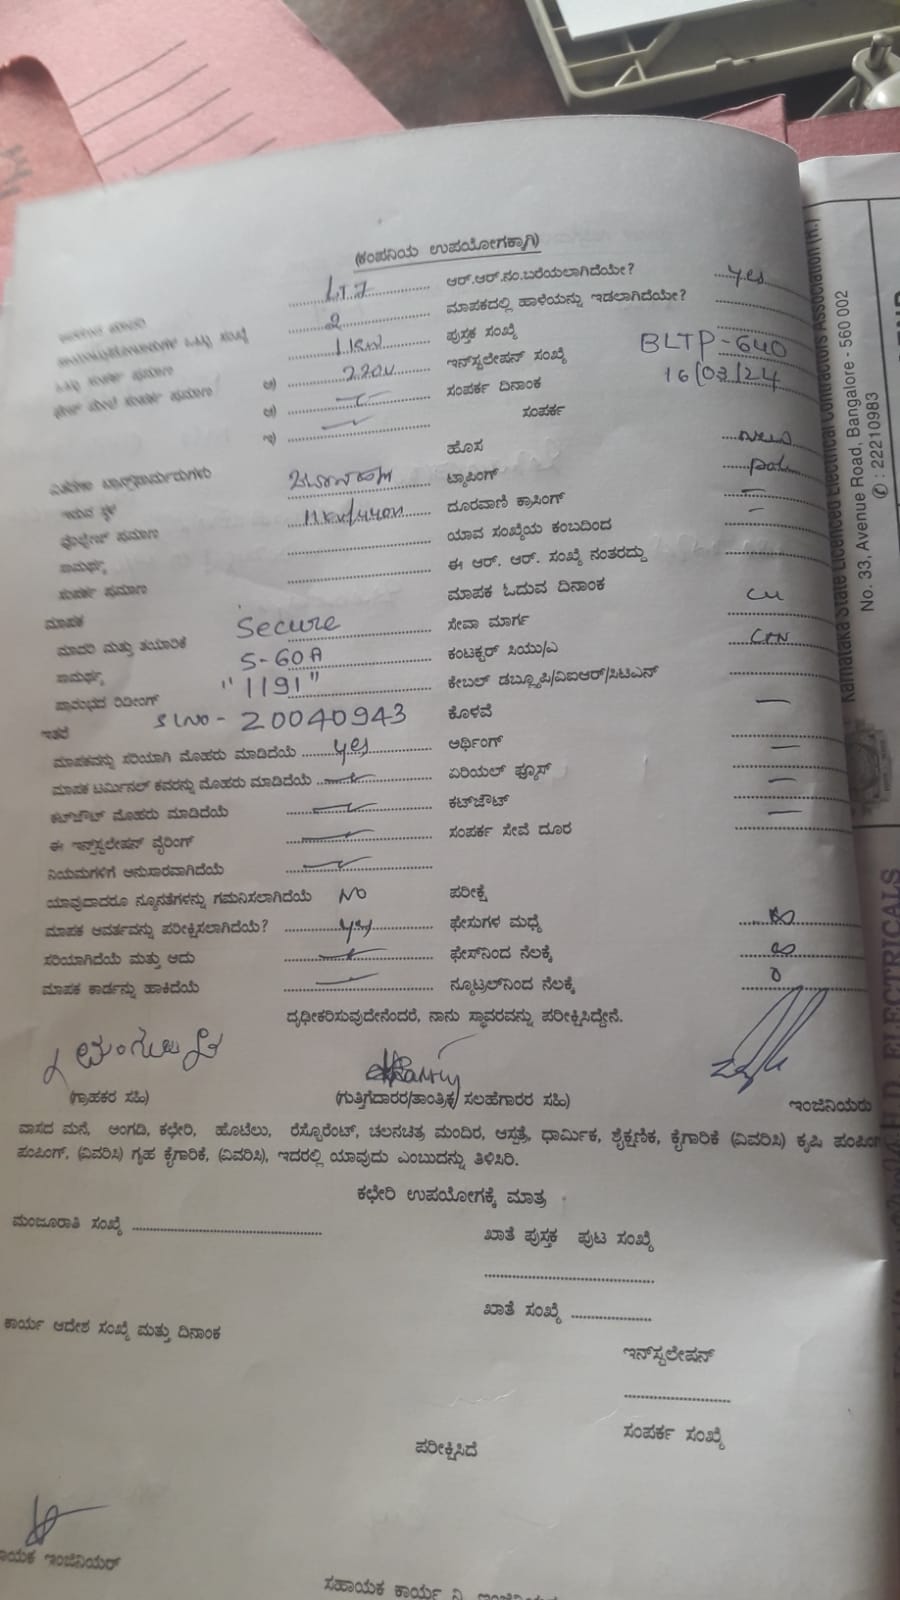 (ಕಂಪನಿಯ ಉಪಯೋಗಕ್ಕಾಗಿ)
ಆರ್.ಆರ್.ನಂ.ಬರೆಯಲಾಗಿದೆಯೇ? yes
2 ಮಾಪಕದಲ್ಲಿ ಹಾಳೆಯನ್ನು ಇಡಲಾಗಿದೆಯೇ?
ಪುಸ್ತಕ ಸಂಖ್ಯೆ
ಅ) 220V ಇನ್‌ಸ್ಟಲೇಷನ್ ಸಂಖ್ಯೆ BLTP-640
ಆ) ಸಂಪರ್ಕ ದಿನಾಂಕ 16/03/24
ಇ) ಸಂಪರ್ಕ
ಹೊಸ
ಇರುವ ಸ್ಥಳ ಟ್ಯಾಪಿಂಗ್
ವೋಲ್ಟೇಜ್ ಪ್ರಮಾಣ 11KV/440V ದೂರವಾಣಿ ಕ್ರಾಸಿಂಗ್ –
ಸಾಮರ್ಥ್ಯ ಯಾವ ಸಂಖ್ಯೆಯ ಕಂಬದಿಂದ –
ಸಂಪರ್ಕ ಪ್ರಮಾಣ ಈ ಆರ್. ಆರ್. ಸಂಖ್ಯೆ ನಂತರದ್ದು
ಮಾಪಕ ಮಾಪಕ ಓದುವ ದಿನಾಂಕ
ಮಾದರಿ ಮತ್ತು ತಯಾರಿಕೆ Secure ಸೇವಾ ಮಾರ್ಗ CU
ಸಾಮರ್ಥ್ಯ 5-60A ಕಂಟಕ್ಟರ್ ಸಿಯು/ಎ
ಪ್ರಾರಂಭದ ರಿಡಿಂಗ್ "1191" ಕೇಬಲ್ ಡಬ್ಲ್ಯೂಪಿ/ವಿಐಆರ್/ಸಿಟಿಎನ್
ಇತರೆ Sl No - 20040943 ಕೊಳವೆ —
ಮಾಪಕವನ್ನು ಸರಿಯಾಗಿ ಮೊಹರು ಮಾಡಿದೆಯೆ yes ಅರ್ಥಿಂಗ್
ಮಾಪಕ ಟರ್ಮಿನಲ್ ಕವರನ್ನು ಮೊಹರು ಮಾಡಿದೆಯೆ ಏರಿಯಲ್ ಫ್ಯೂಸ್ —
ಕಟ್‌ಔಟ್ ಮೊಹರು ಮಾಡಿದೆಯೆ ಕಟ್‌ಔಟ್ —
ಈ ಇನ್ಸ್‌ಸ್ಟಲೇಷನ್ ವೈರಿಂಗ್ ಸಂಪರ್ಕ ಸೇವೆ ದೂರ —
ನಿಯಮಗಳಿಗೆ ಅನುಸಾರವಾಗಿದೆಯೆ
ಯಾವುದಾದರೂ ನ್ಯೂನತೆಗಳನ್ನು ಗಮನಿಸಲಾಗಿದೆಯೆ NO ಪರೀಕ್ಷೆ
ಮಾಪಕ ಆವರ್ತವನ್ನು ಪರೀಕ್ಷಿಸಲಾಗಿದೆಯೆ? yes ಫೇಸುಗಳ ಮಧ್ಯೆ ∞
ಸರಿಯಾಗಿದೆಯೆ ಮತ್ತು ಆದು ಫೇಸ್‌ನಿಂದ ನೆಲಕ್ಕೆ ∞
ಮಾಪಕ ಕಾರ್ಡನ್ನು ಹಾಕಿದೆಯೆ ನ್ಯೂಟ್ರಲ್‌ನಿಂದ ನೆಲಕ್ಕೆ 0
ದೃಢೀಕರಿಸುವುದೇನೆಂದರೆ, ನಾನು ಸ್ಥಾವರವನ್ನು ಪರೀಕ್ಷಿಸಿದ್ದೇನೆ.
(ಗ್ರಾಹಕರ ಸಹಿ) (ಗುತ್ತಿಗೆದಾರರ/ತಾಂತ್ರಿಕ ಸಲಹೆಗಾರರ ಸಹಿ) ಇಂಜಿನಿಯರು
ವಾಸದ ಮನೆ, ಅಂಗಡಿ, ಕಛೇರಿ, ಹೊಟೆಲು, ರೆಸ್ಟೊರೆಂಟ್, ಚಲನಚಿತ್ರ ಮಂದಿರ, ಆಸ್ಪತ್ರೆ, ಧಾರ್ಮಿಕ, ಶೈಕ್ಷಣಿಕ, ಕೈಗಾರಿಕೆ (ವಿವರಿಸಿ) ಕೃಷಿ ಪಂಪಿಂಗ
ಪಂಪಿಂಗ್, (ವಿವರಿಸಿ) ಗೃಹ ಕೈಗಾರಿಕೆ, (ವಿವರಿಸಿ), ಇದರಲ್ಲಿ ಯಾವುದು ಎಂಬುದನ್ನು ತಿಳಿಸಿರಿ.
ಕಛೇರಿ ಉಪಯೋಗಕ್ಕೆ ಮಾತ್ರ
ಮಂಜೂರಾತಿ ಸಂಖ್ಯೆ ಖಾತೆ ಪುಸ್ತಕ ಪುಟ ಸಂಖ್ಯೆ
ಖಾತೆ ಸಂಖ್ಯೆ
ಕಾರ್ಯ ಆದೇಶ ಸಂಖ್ಯೆ ಮತ್ತು ದಿನಾಂಕ
ಇನ್‌ಸ್ಟಲೇಷನ್
ಸಂಪರ್ಕ ಸಂಖ್ಯೆ
ಪರೀಕ್ಷಿಸಿದೆ
ಾಯಕ ಇಂಜಿನಿಯರ್
ಸಹಾಯಕ ಕಾರ್ಯ ನಿ
Karnataka State Licenced Electrical Contractors Association (R.)
No. 33, Avenue Road, Bangalore - 560 002
✆ : 22210983
ELECTRICALS